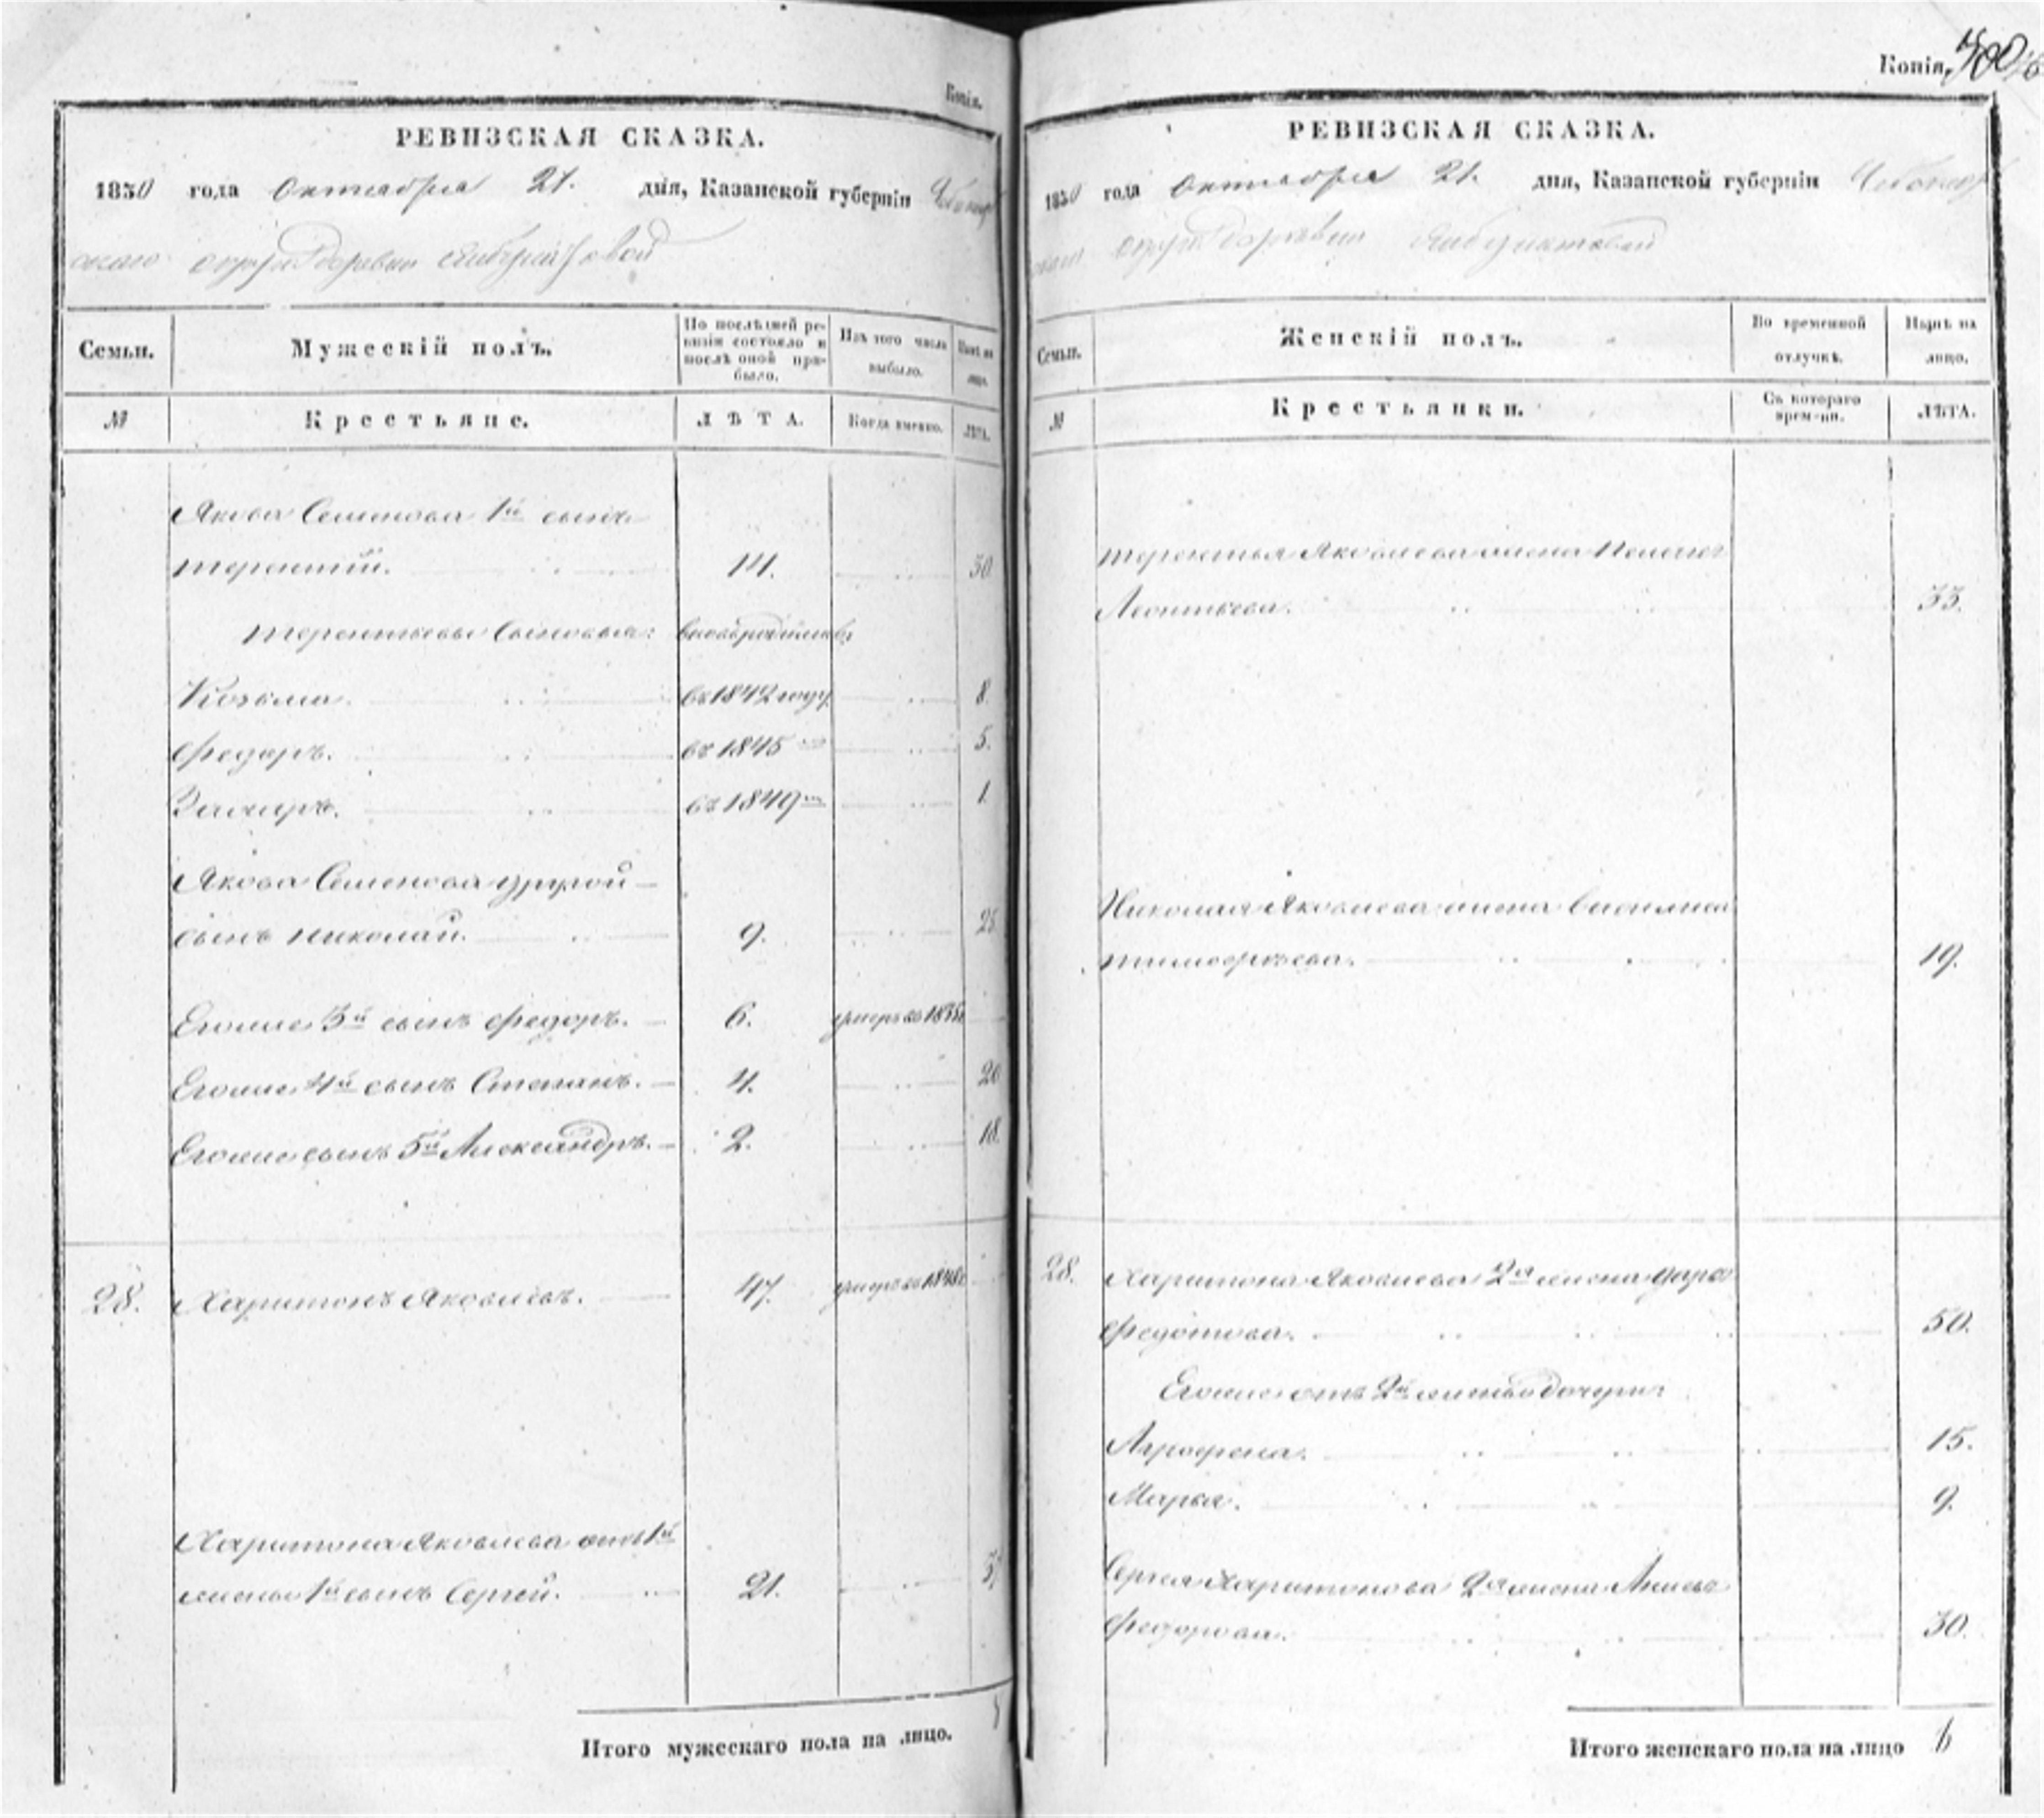 Копія.
РЕВИЗСКАЯ СКАЗКА.
1850 года Октября 21. дня, Казанской губерніи Чебоксар
скаго округа деревни
Семьи.
Мужескій полъ.
По послѣдней ре-
визіи состояло и
послѣ оной при-
было.
Изъ того числа
выбыло.
Нынѣ на
лицо.
№
Крестьяне.
ЛѢТА.
Когда именно.
ЛѢТА.
Якова Семенова 1й сынъ
Терентій. 14. 30
Терентьевы сыновья: вновьрожденные
Козьма. въ 1842 году 8.
Федоръ. въ 1845 5.
Захаръ. въ 1849 1.
Якова Семенова другой
сынъ Николай. 9. 25
Егоже 3й сынъ Федоръ. 6. умеръ въ
Егоже 4й сынъ Степанъ. 4. 20
Егоже сынъ 5й Александръ. 2. 18.
28. Харитонъ Яковлевъ. 47. умеръ въ 1848
Харитона Яковлева отъ 1й
жены 1й сынъ Сергей. 21.
Итого мужескаго пола на лицо.
Копія.
РЕВИЗСКАЯ СКАЗКА.
1850 года Октября 21. дня, Казанской губерніи Чебоксар
скаго округа деревни
Семьи.
Женскій полъ.
Во временной
отлучкѣ.
Нынѣ на
лицо.
№
Крестьянки.
Съ котораго
времени.
ЛѢТА.
Терентья Яковлева жена
Леонтьева. 33.
Николая Яковлева жена Василиса
Тимофеева. 19.
28. Харитона Яковлева 2я жена Дарья
Федотова. 50.
Егоже отъ 2й жены дочери:
Агрофена. 15.
Марья. 9.
Сергея Харитонова 2я жена
Федорова. 30.
Итого женскаго пола на лицо 6